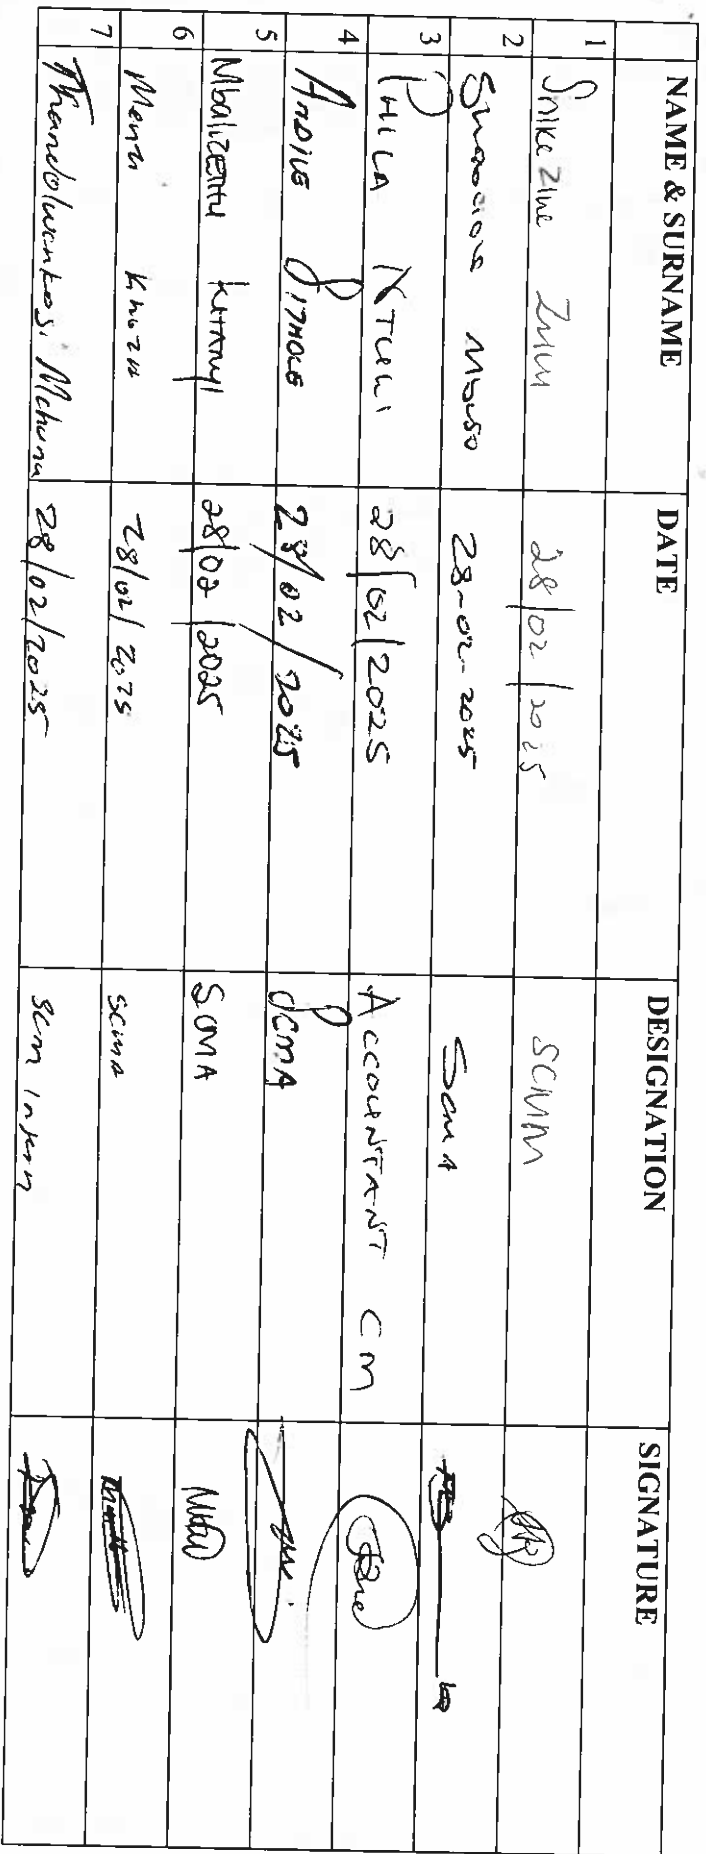 NAME & SURNAME DATE DESIGNATION SIGNATURE
1 Snikeziwe 28/02/2025 SCMM
2 28-02-2025 SCMA
3 PHILA NTULI 28/02/2025 ACCOUNTANT CM
4 ANDILE SITHOLE 28/02/2025 SCMA
5 Mbalizethu 28/02/2025 SCMA
6 Khoza 28/02/2025 SCMA
7 Thandolwenkosi Mchunu 28/02/2025 SCM Intern